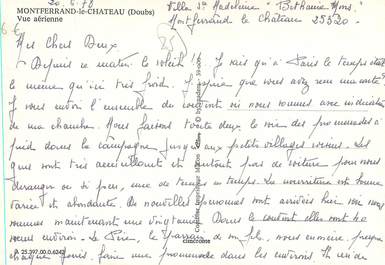 20.4.78
MONTFERRAND-le-CHATEAU (Doubs)
Vue aérienne
Villa Ste Madeleine "Béthanie Mons"
Montferrand le Château 25320
Mes Chers Deux
Depuis ce matin le soleil !! Je sais qu'à Paris le temps était
le même qu'ici très froid. J'espère que vous avez reçu ma carte
Je vous envoi l'ensemble du couvent où nous sommes avec indication
de ma chambre. Nous faisons toute deux le soir des promenades à
pied dans la campagne jusqu'aux petits villages voisins. Les
gens sont très accueillant et surtout pas de voiture pour nous
déranger ou si peu, une de temps en temps. La nourriture est bonne
variée et abondante. De nouvelles personnes sont arrivées hier soir nous
sommes maintenant une vingtaine. Dans le couvent elles sont 40
soeurs environ. Le Père, le parrain de m. fils, nous emmène presque
chaque jours faire une promenade dans les environs.
combier
A 25.397.00.0.6242